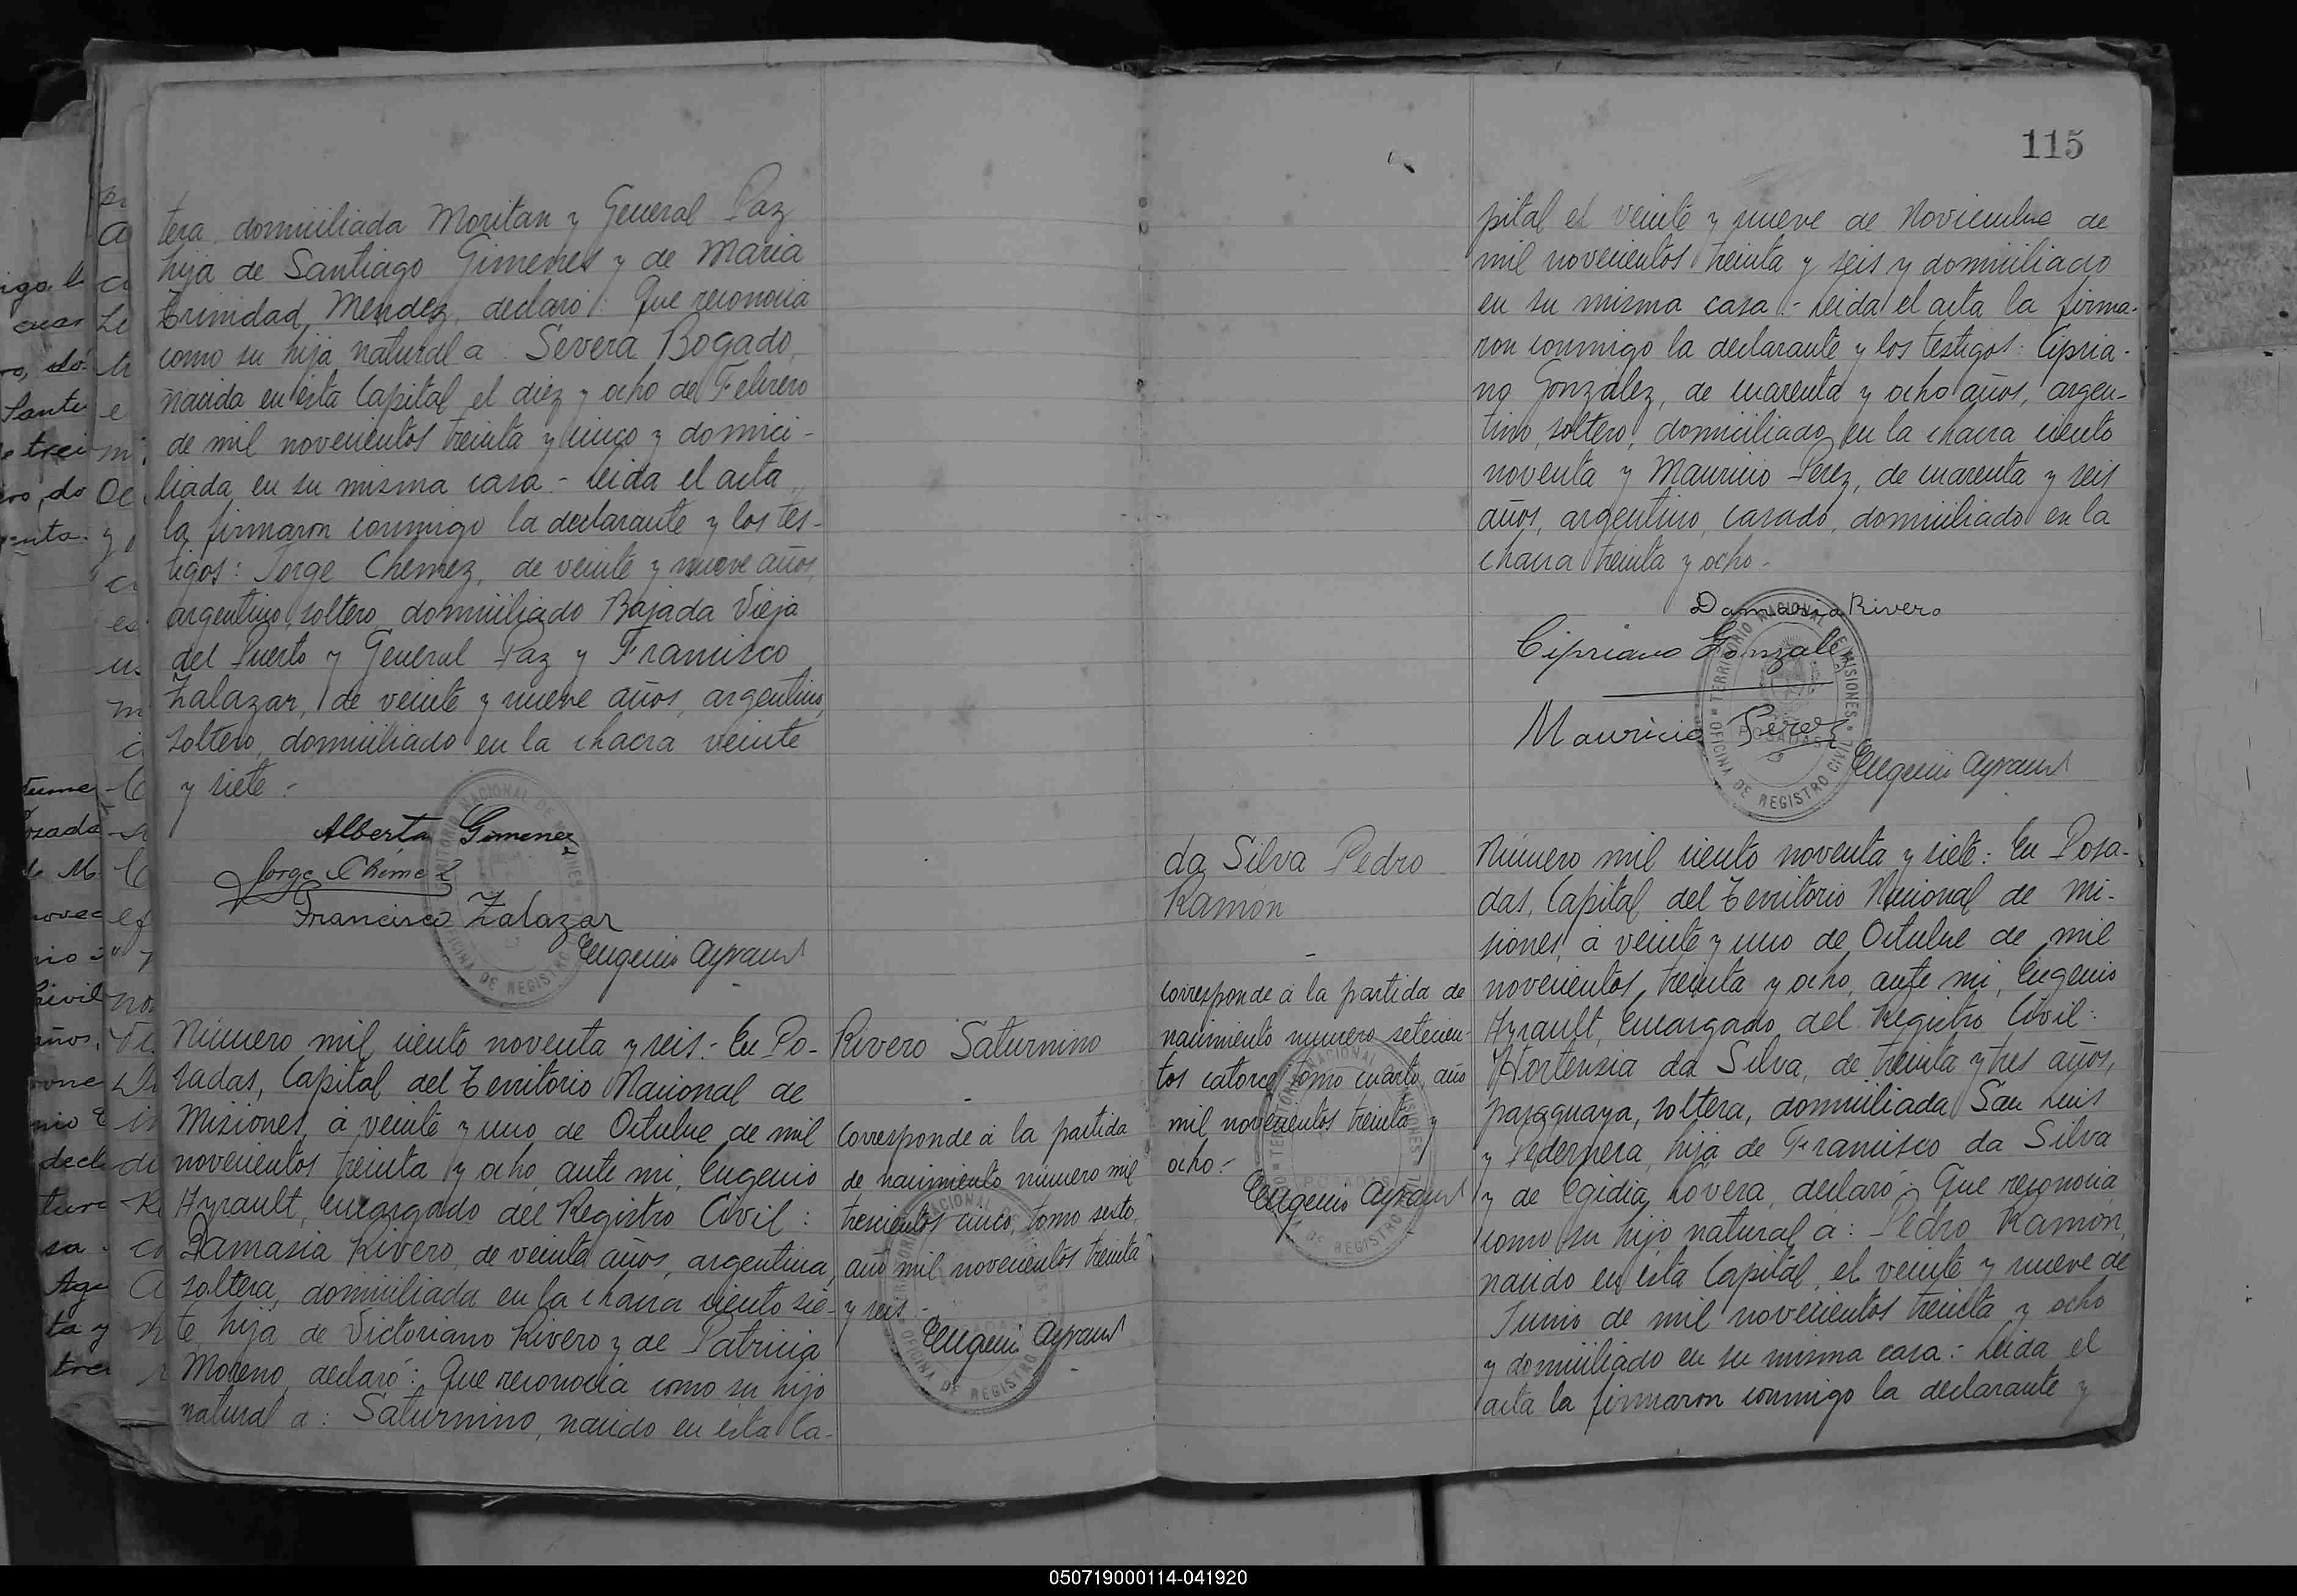 tera, domiciliada Moritan y General Paz
hija de Santiago Gimenes y de Maria
Trinidad Mendez, declaró: Que reconocia
como su hija natural a Severa Bogado,
nacida en esta Capital el diez y ocho de Febrero
de mil novecientos treinta y cinco y domici-
liada en su misma casa.- Leida el acta
la firmaron conmigo la declarante y los tes-
tigos: Jorge Chemez, de veinte y nueve años,
argentino, soltero, domiciliado Bajada Vieja
del Puerto y General Paz y Francisco
Zalazar, de veinte y nueve años, argentino,
soltero, domiciliado en la chacra veinte
y siete.-
Alberta Gimenez
Jorge Chimez
Francisco Zalazar
Eugenio Ayrault
Número mil ciento noventa y seis.- En Po-
sadas, Capital del Territorio Nacional de
Misiones, á veinte y uno de Octubre de mil
novecientos treinta y ocho, ante mi, Eugenio
Ayrault, Encargado del Registro Civil:
Damasia Rivero, de veinte años, argentina,
soltera, domiciliada en la chacra ciento sie-
te, hija de Victoriano Rivero y de Patricia
Moreno, declaró: Que reconocia como su hijo
natural a: Saturnino, nacido en esta Ca-
Rivero Saturnino
-
Corresponde á la partida
de nacimiento número mil
trescientos cinco, tomo sexto,
año mil novecientos treinta
y seis.-
Eugenio Ayrault
da Silva Pedro
Ramón
-
Corresponde á la partida de
nacimiento numero setecien-
tos catorce, tomo cuarto, año
mil novecientos treinta y
ocho.-
Eugenio Ayrault
115
pital el veinte y nueve de Noviembre de
mil novecientos treinta y seis y domiciliado
en su misma casa.- Leida el acta la firma-
ron conmigo la declarante y los testigos: Cipria-
no González, de cuarenta y ocho años, argen-
tino, soltero, domiciliado en la chacra ciento
noventa y Mauricio Perez, de cuarenta y seis
años, argentino, casado, domiciliado en la
chacra treinta y ocho.-
Damasia Rivero
Cipriano Gonzalez
Mauricio Perez
Eugenio Ayrault
TERRITORIO NACIONAL DE MISIONES
POSADAS
OFICINA DE REGISTRO CIVIL
Número mil ciento noventa y siete: En Posa-
das, Capital del Territorio Nacional de Mi-
siones, á veinte y uno de Octubre de mil
novecientos treinta y ocho, ante mi, Eugenio
Ayrault, Encargado del Registro Civil:
Hortensia da Silva, de treinta y tres años,
paraguaya, soltera, domiciliada San Luis
y Pedernera, hija de Francisco da Silva
y de Egidia Lovera, declaró: Que reconocia
como su hijo natural á: Pedro Ramón,
nacido en esta Capital, el veinte y nueve de
Junio de mil novecientos treinta y ocho
y domiciliado en su misma casa.- Leida el
acta la firmaron conmigo la declarante y
050719000114-041920